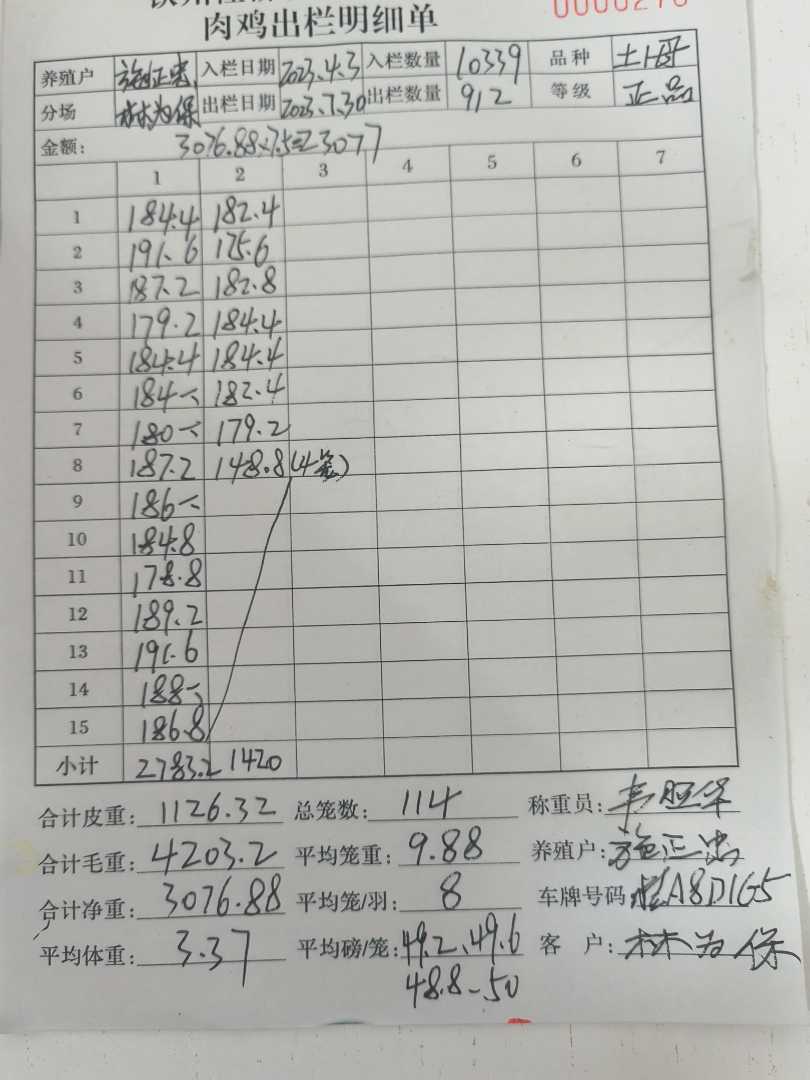 肉鸡出栏明细单
养殖户 施正忠 入栏日期 2023.4.3 入栏数量 10339 品种 土
分场 林为保 出栏日期 2023.7.30 出栏数量 912 等级 正品
金额: 3076.88×7.5=23077
1 2 3 4 5 6 7
1 184.4 182.4
2 191.6 175.6
3 187.2 182.8
4 179.2 184.4
5 184.4 184.4
6 184 182.4
7 180 179.2
8 187.2 148.8 (4笼)
9 186
10 184.8
11 178.8
12 189.2
13 191.6
14 188
15 186.8
小计 2783.2 1420
合计皮重: 1126.32 总笼数: 114 称重员:
合计毛重: 4203.2 平均笼重: 9.88 养殖户: 施正忠
合计净重: 3076.88 平均笼/羽: 8 车牌号码 A8D1G5
平均体重: 3.37 平均磅/笼: 49.2、49.6 客户: 林为保
48.8-50